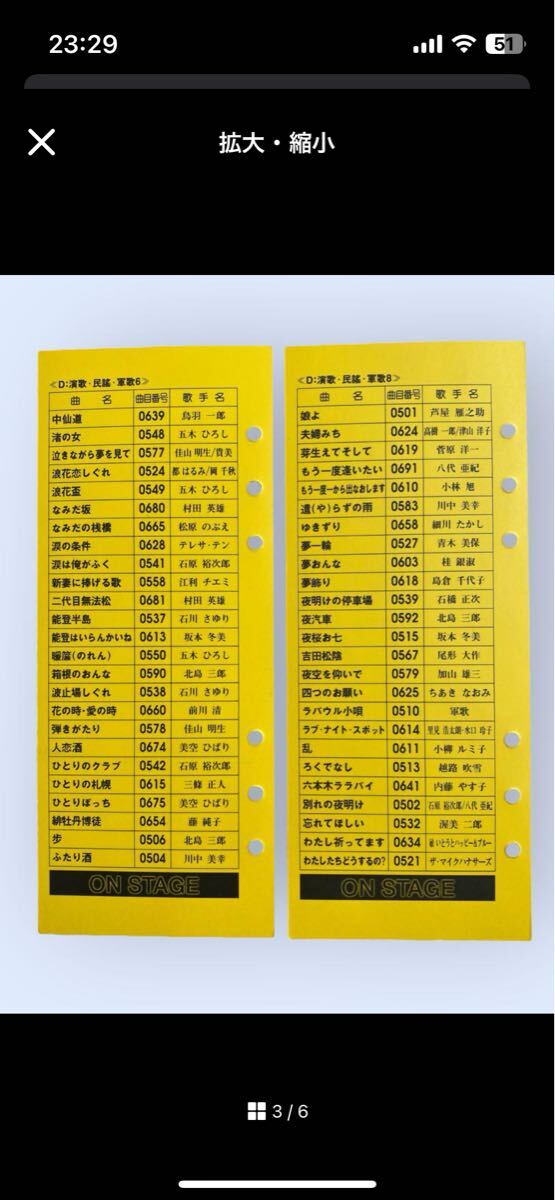 23:29
51
拡大・縮小
≪D:演歌・民謡・軍歌6≫
曲 名 曲目番号 歌 手 名
中仙道 0639 鳥羽 一郎
渚の女 0548 五木 ひろし
泣きながら夢を見て 0577 佳山 明生/貴美
浪花恋しぐれ 0524 都 はるみ/岡 千秋
浪花盃 0549 五木 ひろし
なみだ坂 0680 村田 英雄
なみだの桟橋 0665 松原 のぶえ
涙の条件 0628 テレサ・テン
涙は俺がふく 0541 石原 裕次郎
新妻に捧げる歌 0558 江利 チエミ
二代目無法松 0681 村田 英雄
能登半島 0537 石川 さゆり
能登はいらんかいね 0613 坂本 冬美
暖簾(のれん) 0550 五木 ひろし
箱根のおんな 0590 北島 三郎
波止場しぐれ 0538 石川 さゆり
花の時・愛の時 0660 前川 清
弾きがたり 0578 佳山 明生
人恋酒 0674 美空 ひばり
ひとりのクラブ 0542 石原 裕次郎
ひとりの札幌 0615 三條 正人
ひとりぼっち 0675 美空 ひばり
緋牡丹博徒 0654 藤 純子
歩 0506 北島 三郎
ふたり酒 0504 川中 美幸
ON STAGE
≪D:演歌・民謡・軍歌8≫
曲 名 曲目番号 歌 手 名
娘よ 0501 芦屋 雁之助
夫婦みち 0624 高樹 一郎/津山 洋子
芽生えてそして 0619 菅原 洋一
もう一度逢いたい 0691 八代 亜紀
もう一度一から出なおします 0610 小林 旭
遣(や)らずの雨 0583 川中 美幸
ゆきずり 0658 細川 たかし
夢一輪 0527 青木 美保
夢おんな 0603 桂 銀淑
夢飾り 0618 島倉 千代子
夜明けの停車場 0539 石橋 正次
夜汽車 0592 北島 三郎
夜桜お七 0515 坂本 冬美
吉田松陰 0567 尾形 大作
夜空を仰いで 0579 加山 雄三
四つのお願い 0625 ちあき なおみ
ラバウル小唄 0510 軍歌
ラブ・ナイト・スポット 0614 里見 浩太朗・水口 玲子
乱 0611 小柳 ルミ子
ろくでなし 0513 越路 吹雪
六本木ララバイ 0641 内藤 やす子
別れの夜明け 0502 石原 裕次郎/八代 亜紀
忘れてほしい 0532 渥美 二郎
わたし祈ってます 0634 敏いとうとハッピー&ブルー
わたしたちどうするの? 0521 ザ・マイクハナサーズ
ON STAGE
3 / 6